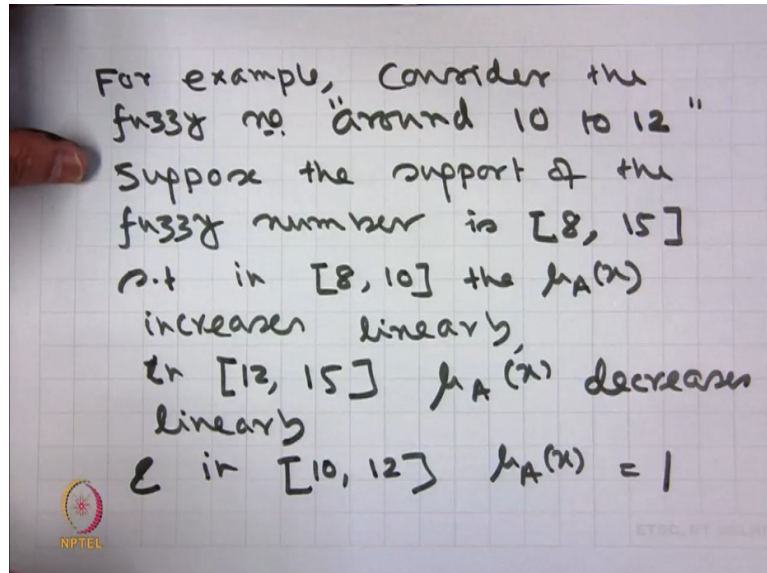 For example, Consider the
fuzzy no. "around 10 to 12"
Suppose the support of the
fuzzy number is [8, 15]
s.t in [8, 10] the μA(x)
increases linearly,
In [12, 15] μA(x) decreases
linearly
& in [10, 12] μA(x) = 1
NPTEL
ETSC, IIT DELHI